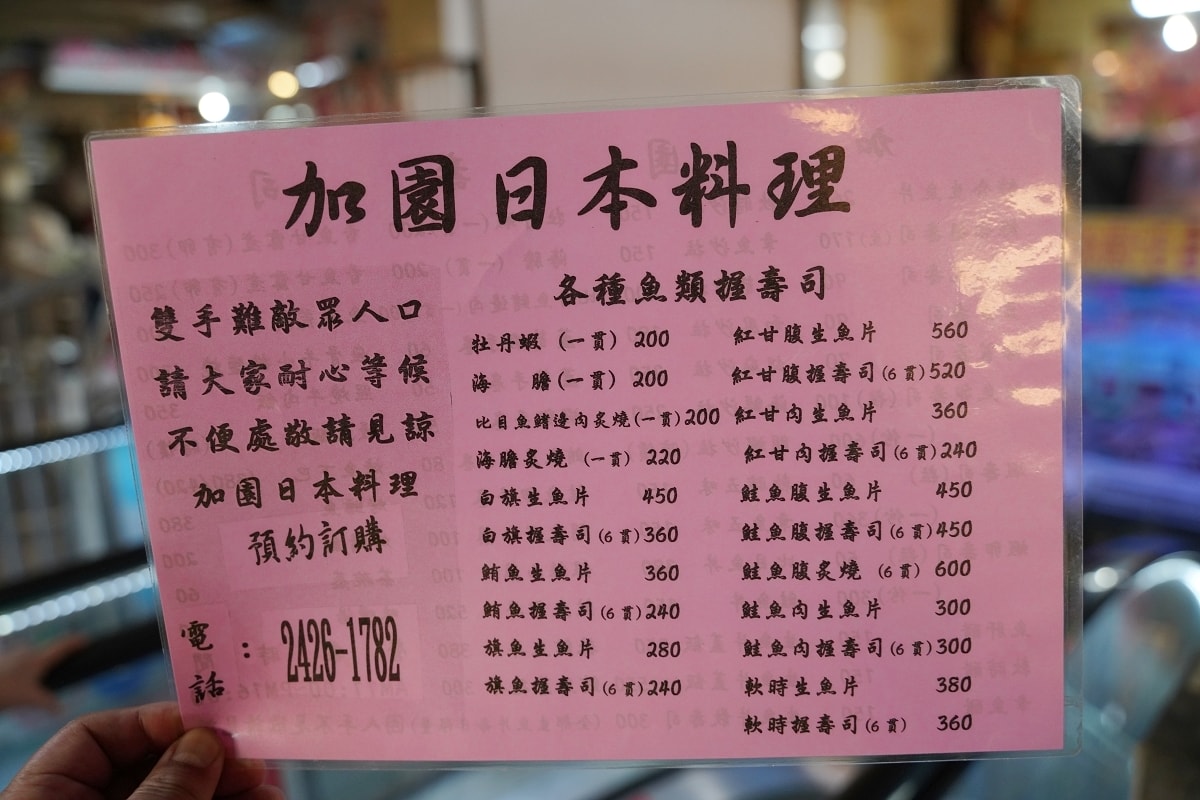 加園日本料理
雙手難敵眾人口
請大家耐心等候
不便處敬請見諒
加園日本料理
預約訂購
電話：2426-1782
各種魚類握壽司
牡丹蝦 (一貫) 200
海膽(一貫) 200
比目魚鰭邊肉炙燒(一貫)200
海膽炙燒 (一貫) 220
白旗生魚片 450
白旗握壽司(6貫)360
鮪魚生魚片 360
鮪魚握壽司(6貫)240
旗魚生魚片 280
旗魚握壽司(6貫)240
紅甘腹生魚片 560
紅甘腹握壽司(6貫)520
紅甘肉生魚片 360
紅甘肉握壽司(6貫)240
鮭魚腹生魚片 450
鮭魚腹握壽司(6貫)450
鮭魚腹炙燒 (6貫) 600
鮭魚肉生魚片 300
鮭魚肉握壽司(6貫)300
軟時生魚片 380
軟時握壽司(6貫) 360